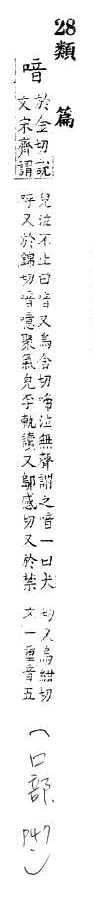 28類篇
喑
於金切說
文宋齊謂
兒泣不止曰喑又烏含切啼泣無聲謂之喑一曰大
呼又於錦切喑噫聚气皃李軌讀又鄔感切又於禁
切又烏紺切
文一重音五
(口部. P47)